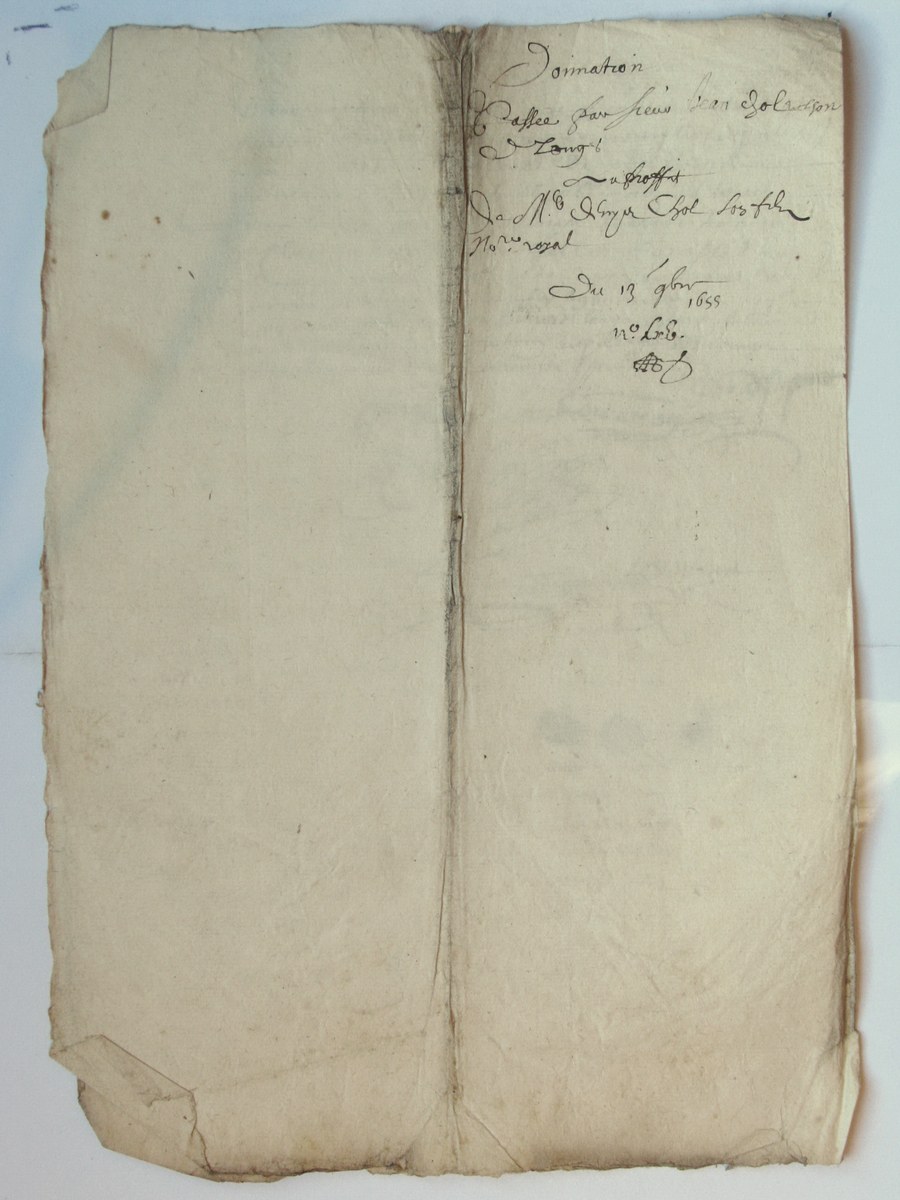 Donnation
Passee par sieur Jean Chol
De Longe
Au proffit
De Me Chol son filz
Nore royal
Du 13 9bre
1655
no.